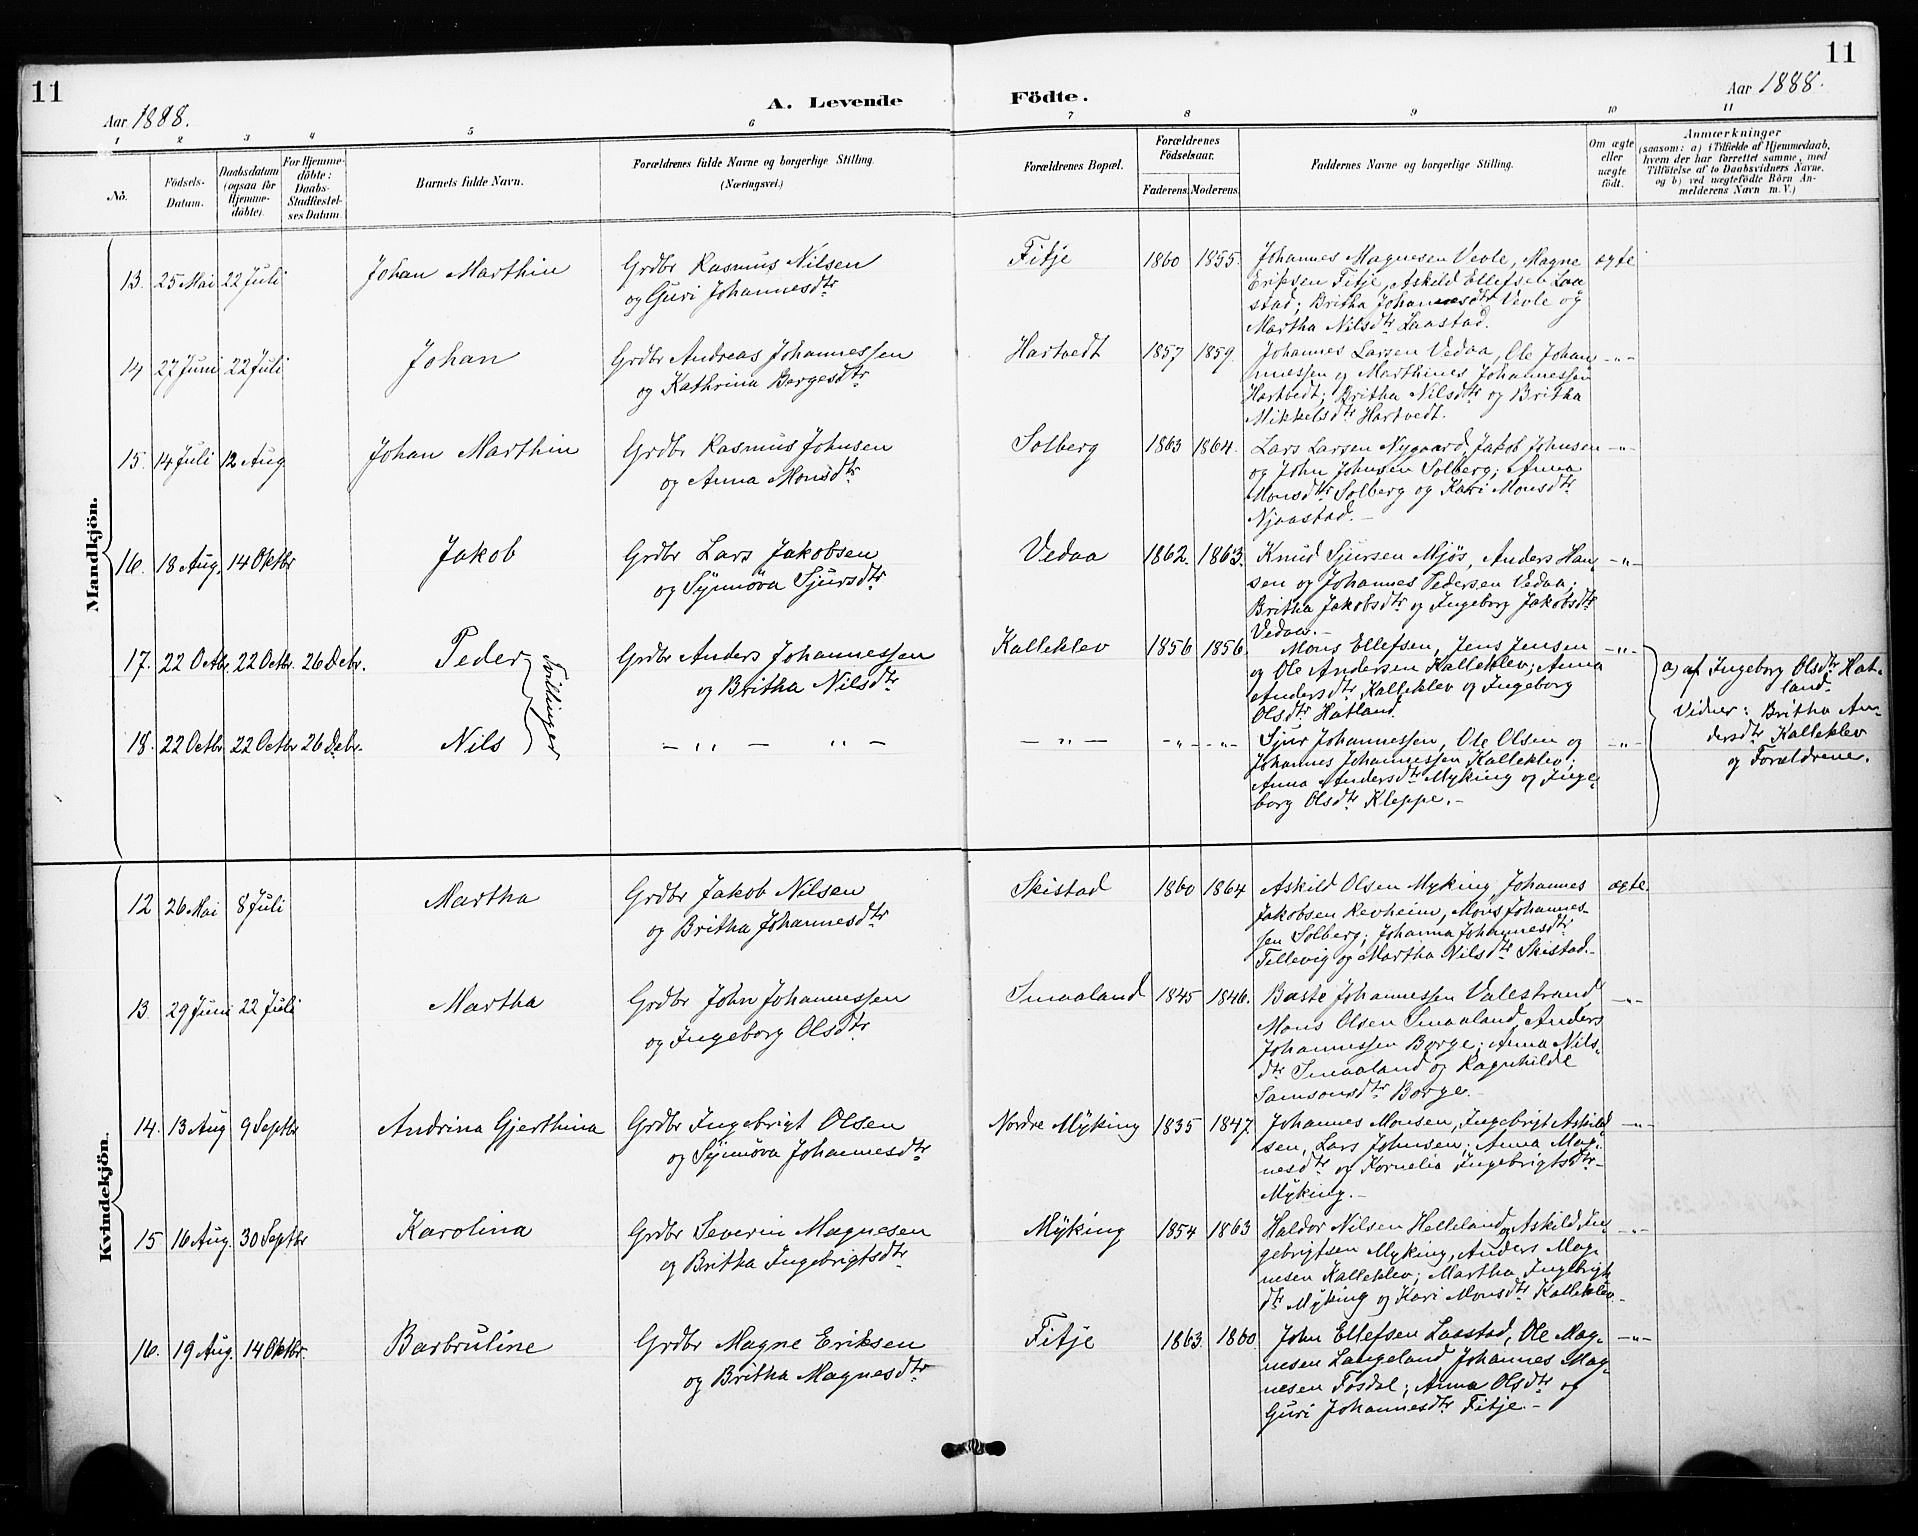 11
11
Aar 1888.
A. Levende Födte.
Aar 1888.
1 2 3 4 5 6 7 8 9 10 11
No.
Födsels-
Datum.
Daabsdatum
(ogsaa for
Hjemme-
döbte).
For Hjemme-
döbte:
Daabs-
Stadfæstel-
ses Datum.
Barnets fulde Navn.
Forældrenes fulde Navne og borgerlige Stilling.
(Næringsvei.)
Forældrenes Bopæl.
Forældrenes
Födselsaar.
Faderens. Moderens.
Faddernes Navne og borgerlige Stilling.
Om ægte
eller
uægte
födt.
Anmærkninger
(saasom: a) i Tilfælde af Hjemmedaab,
hvem der har forrettet samme, med
Tilföielse af to Daabsvidners Navne,
og b) ved uægtefödte Börn An-
melderens Navn m. V.)
Mandkjön.
13. 25 Mai 22 Juli Johan Marthin
Grdbr Rasmus Nilsen
og Guri Johannesdtr
Fitje 1860 1855.
Johannes Magnesen Vevle, Magne
Eriksen Fitje, Askild Ellefsen Laa
stad; Britha Johannesdtr Vevle og
Martha Nilsdtr Laastad.
ægte
14 27 Juni 22 Juli Johan
Grdbr Andreas Johannessen
og Kathrina Borgesdtr
Hartvedt 1857 1859
Johannes Larsen Vedaa, Ole Johan
nnessen og Marthines Johannessen
Hartvedt; Britha Nilsdtr og Britha
Mikkelsdtr Hartvedt.
-"-
15. 14 Juli 12 Aug Johan Marthin
Grdbr Rasmus Johnsen
og Anna Monsdtr
Solberg 1863 1864.
Lars Larsen Nygaard, Jakob Johnsen
og John Johnsen Solberg; Anna
Monsdtr Solberg og Kari Monsdtr
Njaastad.-
-"-
16. 18 Aug. 14 Oktbr Jakob
Grdbr Lars Jakobsen
og Synnöva Sjursdtr
Vedaa 1862. 1863.
Knud Sjursen Mjös, Anders Han-
sen og Johannes Pedersen Vedaa;
Britha Jakobsdtr og Ingeborg Jakobsdtr
Vedaa.-
-"-
17. 22 Octbr. 22 Octbr. 26 Debr. Peder
Tvillinger
Grdbr Anders Johannessen
og Britha Nilsdtr
Kalleklev 1856 1856.
Mons Ellefsen, Jens Jensen
og Ole Andersen Kalleklev; Anna
Andersdtr Kalleklev og Ingeborg
Olsdtr Hatland.
-"-
a) af Ingeborg Olsdtr Hat-
land.
Vidner: Britha An-
dersdtr Kalleklev
og Forældrene.
18. 22 Octbr 22 Octbr 26 Debr. Nils
- " - " - - " - - " - - " -
Sjur Johannessen, Ole Olsen og
Johannes Johannessen Kalleklev;
Anna Andersdtr Myking og Inge-
borg Olsdtr Kleppe.-
-"-
Kvindekjön.
12 26 Mai 8 Juli Martha
Grdbr Jakob Nilsen
og Britha Johannesdtr
Skistad 1860 1864
Askild Olsen Myking, Johannes
Jakobsen Revheim, Mons Johannes-
sen Solberg; Johanna Johannesdtr
Tellevig og Martha Nilsdtr Skistad.-
ægte
13 29 Juni 22 Juli Martha
Grdbr John Johannessen
og Ingeborg Olsdtr
Smaaland 1845 1846.
Baste Johannessen Valestrand,
Mons Olsen Smaaland, Anders
Johannessen Borge; Anna Nils-
dtr Smaaland og Ragnhilde
Samsonsdtr Borge.
-"-
14. 13 Aug 9 Septbr Andrina Gjerthina
Grdbr Ingebrigt Olsen
og Synnöva Johannesdtr
Nordre Myking 1835 1847.
Johannes Monsen, Ingebrigt Askild
sen, Lars Johnsen; Anna Mag-
nesdtr og Kornelia Ingebrigtsdtr
Myking.-
-"-
15 16 Aug. 30 Septbr Karolina
Grdbr Severin Magnesen
og Britha Ingebrigtsdtr
Myking 1854 1863
Haldor Nilsen Helleland og Askild In-
gebrigtsen Myking, Anders Mag-
nesen Kalleklev; Martha Ingebrigts
dtr Myking og Kari Monsdtr Kalleklev.
-"-
16. 19 Aug. 14 Oktbr. Barbruline
Grdbr Magne Eriksen
og Britha Magnesdtr
Fitje 1863. 1860
John Ellefsen Laastad, Ole Mag-
nesen Langeland, Johannes Mag-
nesen Fosdal; Anna Olsdtr og
Guri Johannesdtr Fitje.-
-"-